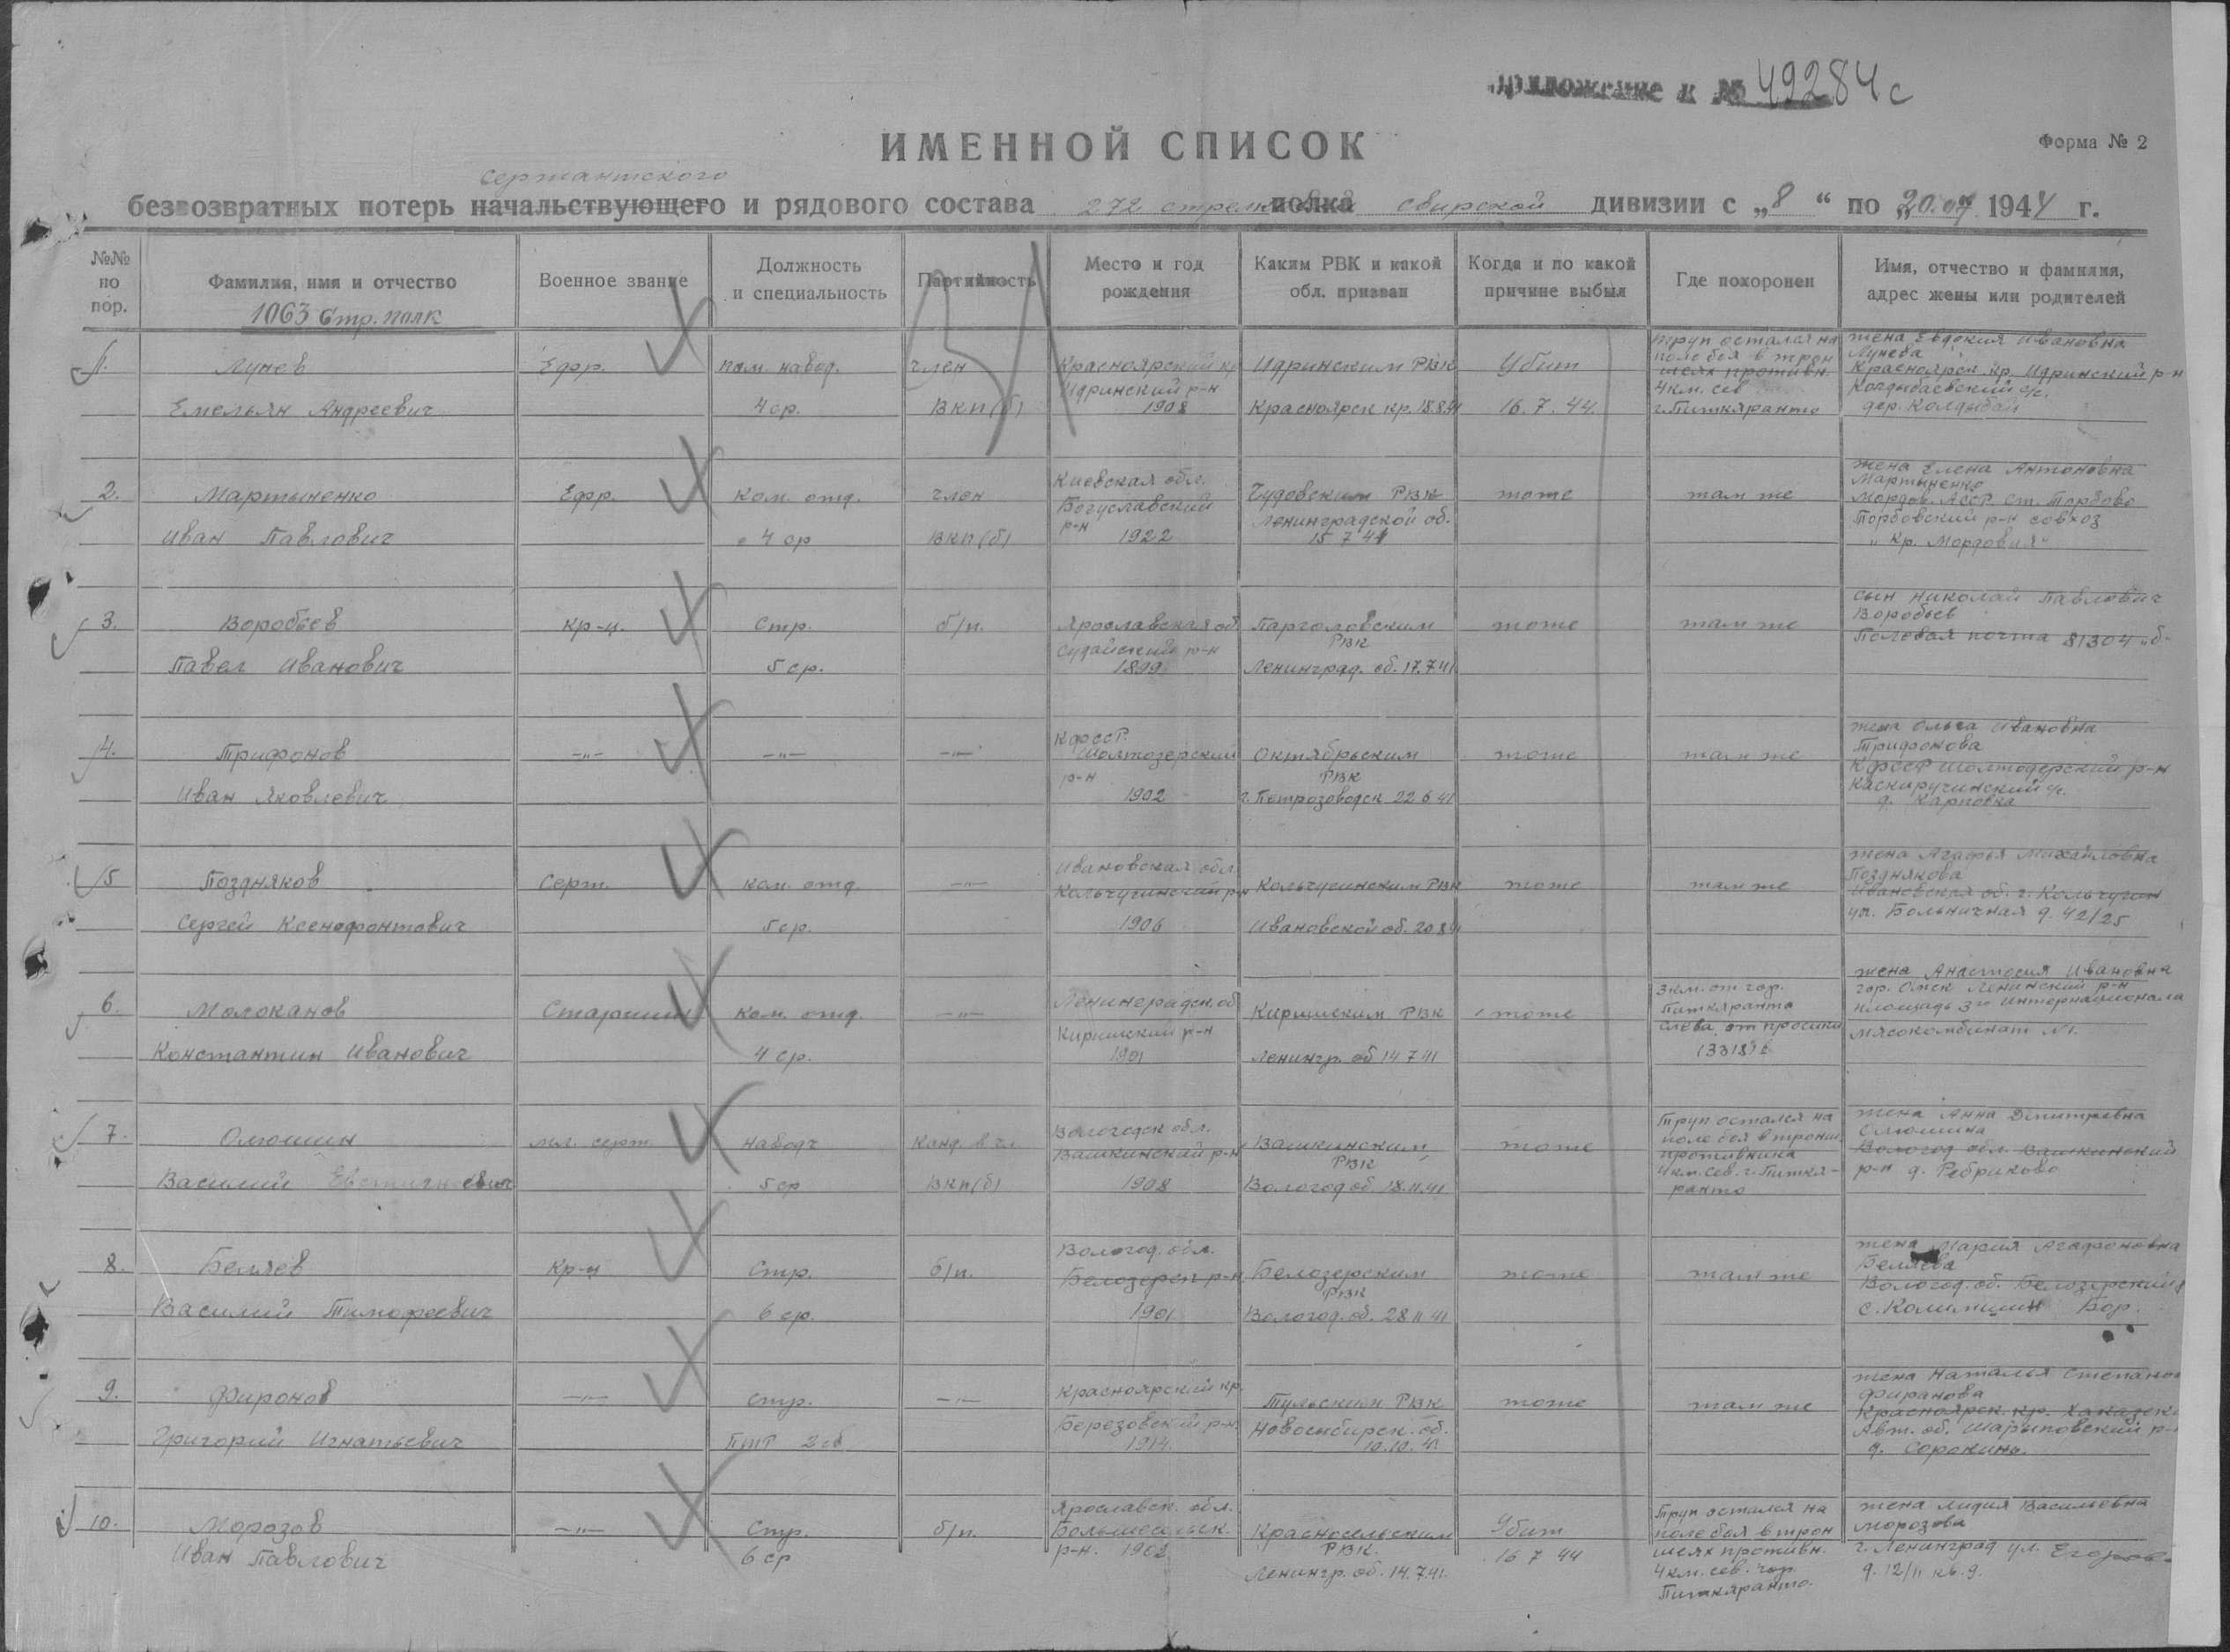 Приложение к № 49284с
ИМЕННОЙ СПИСОК
Форма № 2
сержантского
безвозвратных потерь начальствующего и рядового состава 272 стрелковой полка свирской дивизии с „8 “ по „20.07 1944 г.
№№ по пор.
Фамилия, имя и отчество
1063 Стр. полк
Военное звание
Должность и специальность
Партийность
Место и год рождения
Каким РВК и какой обл. призван
Когда и по какой причине выбыл
Где похоронен
Имя, отчество и фамилия, адрес жены или родителей
1.
Лунев
Емельян Андреевич
Ефр.
пом. навод.
4 ср.
член
ВКП(б)
Красноярский кр
Идринский р-н
1908
Идринским РВК
Красноярск кр. 18.8.41
Убит
16.7.44.
Труп остался на
поле боя в тран
шеях противн.
4 км. сев
г. Питкяранто
жена Евдокия Ивановна
Лунева
Красноярск. кр. Идринский р-н
Колдыбаевский с/с.
дер. Колдыбай
2.
Мартыненко
Иван Павлович
Ефр.
ком. отд.
4 ср
член
ВКП(б)
Киевская обл.
Богуславский
р-н
1922
Чудовским РВК
Ленинградской об.
15 7 41
тоже
там же
жена Елена Антоновна
Мартыненко
Мордов. АССР ст. Торбово
Торбовский р-н совхоз
„Кр. Мордовия“
3.
Воробьев
Павел Иванович
Кр-ц.
Стр.
5 ср.
б/п.
Ярославская об.
Судайский р-н
1899
Парголовским
РВК
Ленинград. об. 17.7.41
тоже
там же
сын Николай Павлович
Воробьев
Полевая почта 81304 „б“
4.
Трифонов
Иван Яковлевич
-"-
-"-
-"-
КФССР
Шолтозерский
р-н
1902
Октябрьским
РВК
г. Петрозаводск 22 6 41
тоже
там же
жена Ольга Ивановна
Трифонова
КФССР Шолтозерский р-н
Каскиручинский с/с.
д. Карповка
5
Поздняков
Сергей Ксенофонтович
Серж.
ком. отд.
5 ср.
-"-
Ивановская обл
Кольчугинский р-н
1906
Кольчугинским РВК
Ивановской об. 20 8 41
тоже
там же
жена Агафья Михайловна
Позднякова
Ивановская об. г. Кольчугин
ул. Больничная д. 42/25
6.
Молоканов
Константин Иванович
Старшин
ком. отд.
4 ср.
-"-
Ленинградск. об
Киришский р-н
1901
Киришским РВК
Ленингр. об 14 7 41
тоже
3 км. от гор.
Питкяранто
слева, от просики
(3318)
жена Анастасия Ивановна
гор. Омск Ленинский р-н
площадь 3го Интернационала
мясокомбинат №1.
7.
Олюшин
Василий Евстигнеевич
мл. серж.
наводч
5 ср
Канд. в чл.
ВКП(б)
Вологодск обл.
Вашкинский р-н
1908
Вашкинским
РВК
Вологод об. 18.11.41
тоже
Труп остался на
поле боя в транш.
противника
4 км. сев. г. Питкя-
ранто
жена Анна Дмитревна
Олюшина
Вологод обл. Вашкинский
р-н д. Ребриково
8.
Беляев
Василий Тимофеевич
Кр-ц
Стр.
6 ср.
б/п.
Вологод. обл.
Белозерск р-н
1901
Белозерским
РВК
Вологод. об. 28 11 41
тоже
там же
жена Мария Агафоновна
Беляева
Вологод. об. Белозерский
с. Бор.
9.
Фиронов
Григорий Игнатьевич
-"-
стр.
ПТР
-"-
Красноярский кр.
Березовский р-н.
1914
Тульским РВК
Новосибирск. об.
10.10. 41.
тоже
там же
жена Наталья Степанов
Фиранова
Красноярск. кр. Хакасск.
Авт. об. Шарыповский р-
д. Сорокинь.
10.
Морозов
Иван Павлович
-"-
Стр.
6 ср
б/п.
Ярославск. обл.
Большесельск.
р-н. 1902
Красносельским
РВК.
Ленингр. об. 14.7.41.
Убит
16 7 44
Труп остался на
поле боя в тран
шеях противн.
4 км. сев. гор.
Питкяранто.
жена Лидия Васильевна
Морозова
г. Ленинград ул. Егоров.
д. 12/11 кв. 9.